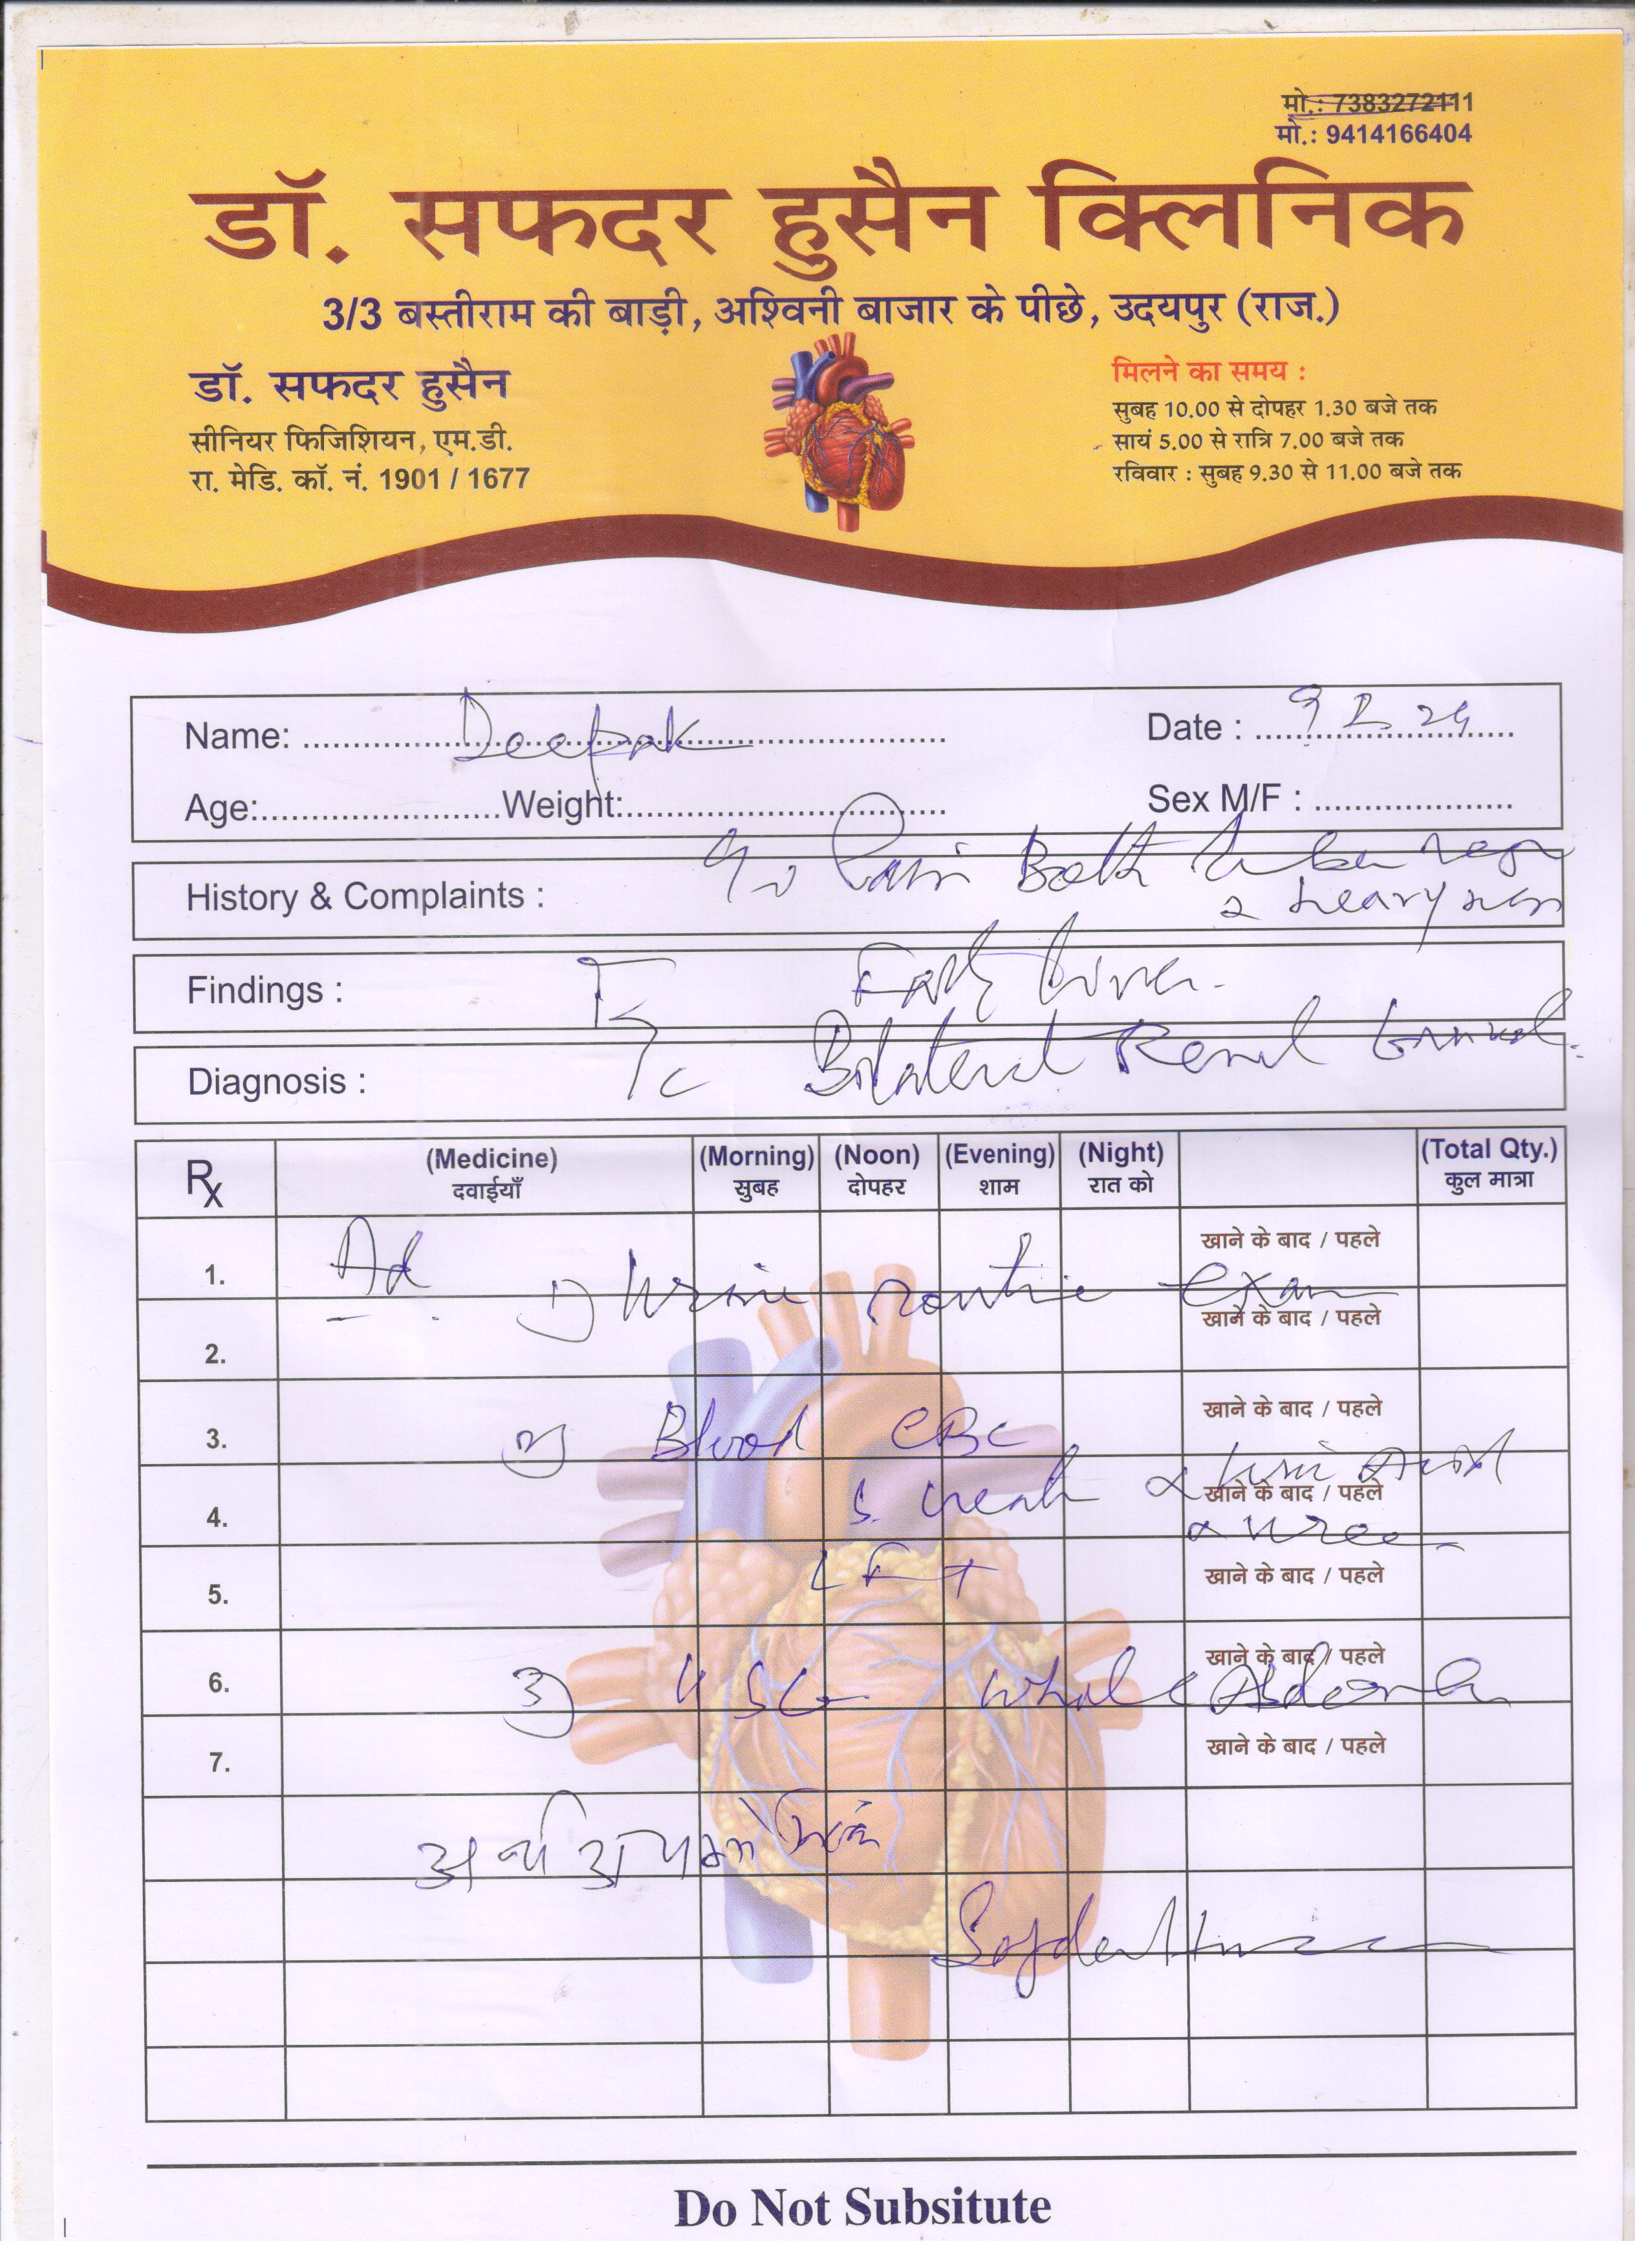 मो.: 7383272111
मो.: 9414166404
डॉ. सफदर हुसैन क्लिनिक
3/3 बस्तीराम की बाड़ी, अश्विनी बाजार के पीछे, उदयपुर (राज.)
डॉ. सफदर हुसैन
सीनियर फिजिशियन, एम.डी.
रा. मेडि. कॉ. नं. 1901 / 1677
मिलने का समय :
सुबह 10.00 से दोपहर 1.30 बजे तक
सायं 5.00 से रात्रि 7.00 बजे तक
रविवार : सुबह 9.30 से 11.00 बजे तक
Name: Deepak Date : 9
Age: Weight: Sex M/F :
Pain Both
History & Complaints : heavyness
Findings : Fatty liver.
Diagnosis : Bilateral Renal
Rx (Medicine) (Morning) (Noon) (Evening) (Night) (Total Qty.)
दवाईयाँ सुबह दोपहर शाम रात को कुल मात्रा
Ad
1. खाने के बाद / पहले
1) Urine routine exam
2. खाने के बाद / पहले
3. खाने के बाद / पहले
2) Blood CBC
4. S. Creat & Uric Acid खाने के बाद / पहले
& Urea
5. LFT खाने के बाद / पहले
6. खाने के बाद / पहले
3) USG whole Abdomen
7. खाने के बाद / पहले
Do Not Subsitute